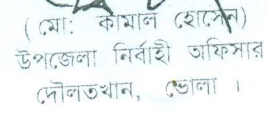 ( মো: কামাল হোসেন)
উপজেলা নির্বাহী অফিসার
দৌলতখান, ভোলা ।